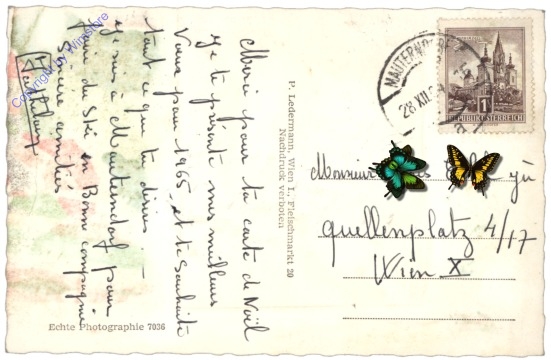 Merci pour ta carte de Noël
Je te présente mes meilleurs
Vœux pour 1965 et te souhaite
tout ce que tu désires. —
Je suis à Mauterndorf pour
faire du Ski en Bonne compagnie
Sincère amitiés
Copyright by Winstore
P. Ledermann, Wien I., Fleischmarkt 20
Nachdruck verboten
Echte Photographie 7036
MAUTERNDORF
28.XII.
REPUBLIK ÖSTERREICH
1
Monsieur
Quellenplatz 4/17
Wien X